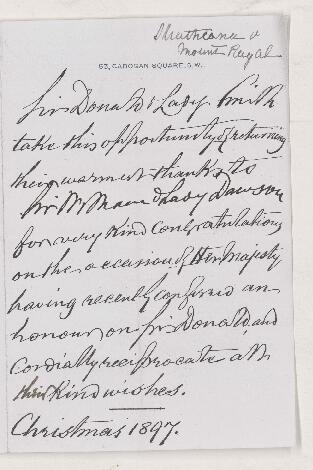 Strathcona &
Mount Royal
53, CADOGAN SQUARE, S.W.
Sir Donald & Lady Smith
take this opportunity of returning
their warmest thanks to
Sir William & Lady Dawson
for very kind Congratulations
on the occasion of Her Majesty
having recently conferred an
honour on Sir Donald, and
Cordially reciprocate all
their kind wishes.
Christmas 1897.